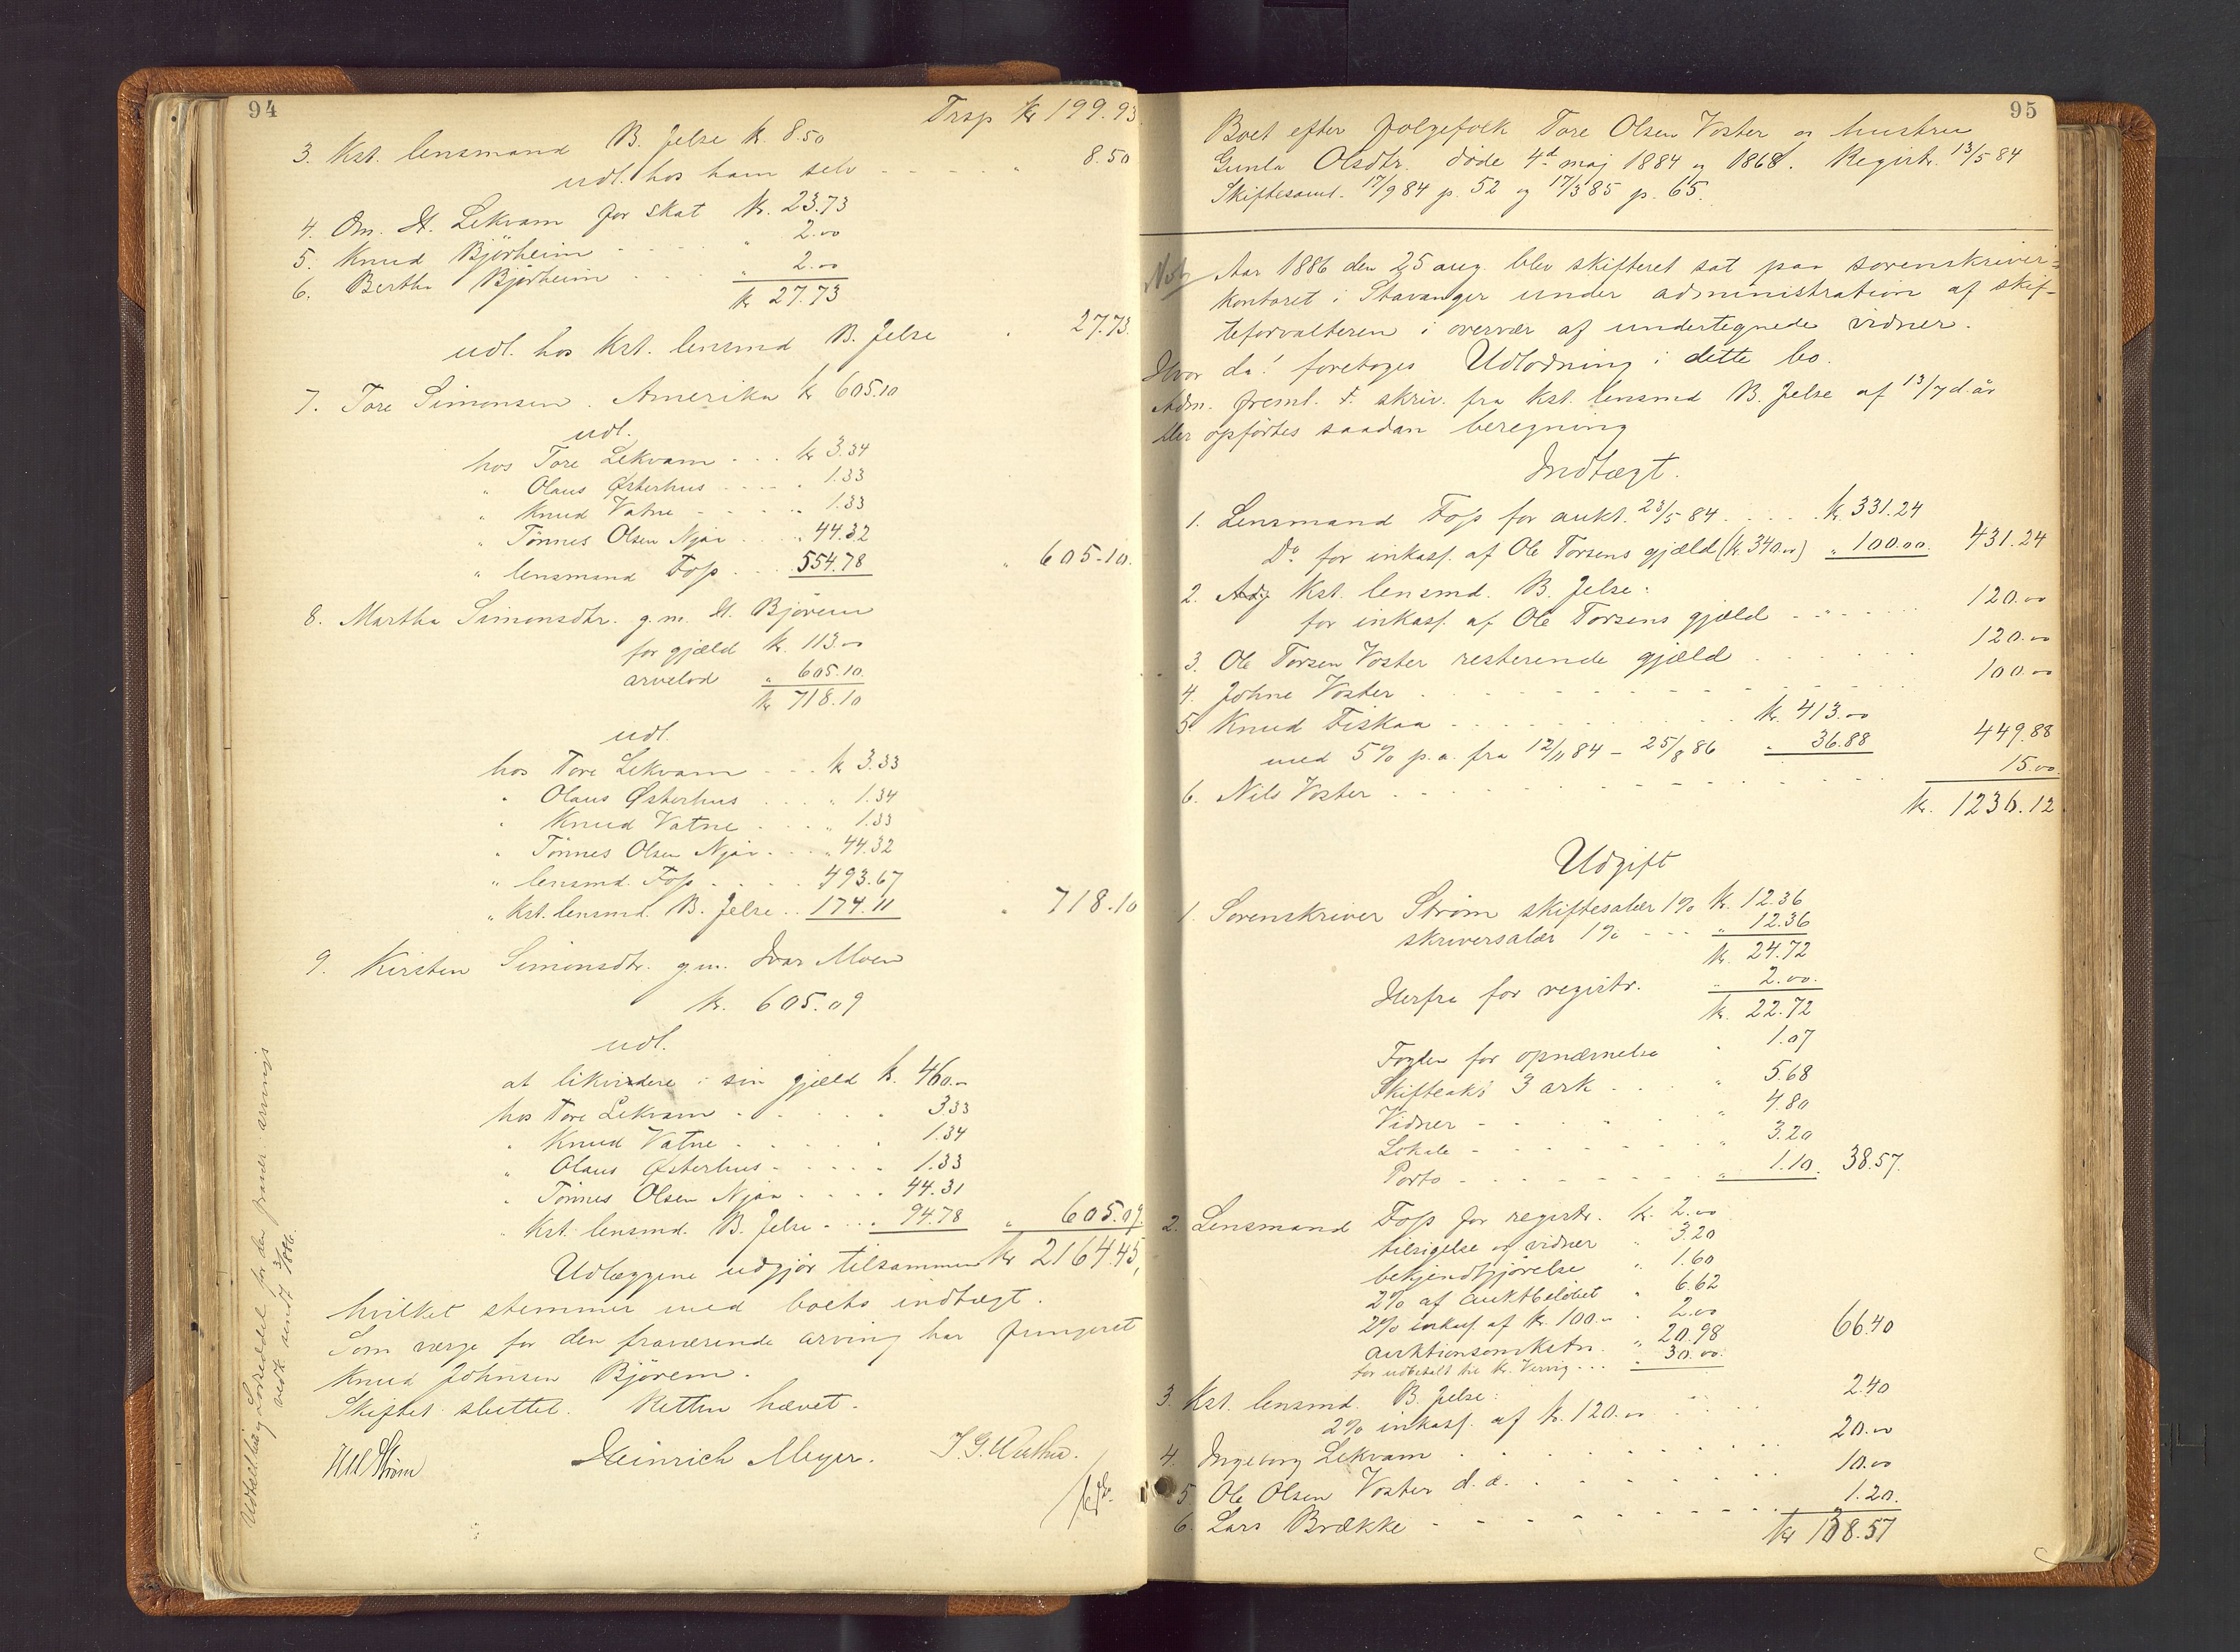 94
Trsp kr 199.93.
3. Kst. lensmand B. Jelse k. 8.50
udl. hos ham selv - - - - " 8.50
4. Om. H. Lekvam for skat kr. 23.73
5. Knud Bjørheim - - - - " 2.00
6. Bertha Bjørheim - - - - " 2.00
kr 27.73
udl. hos kst. lensmd B. Jelse . 27.73.
7. Tore Simonsen. Amerika kr 605.10
udl.
hos Tore Lekvam - - . kr 3.34
" Olaus Østerhus - - - - . 1.33
" Knud Vatne - - - - " 1.33
" Tönnes Olsen Njåa - . . . 44.32
" lensmand Foss - . . 554.78 " 605.10.
8. Martha Simonsdtr. g.m. H. Bjørem
for gjæld kr. 113.00
arvelod " 605.10
kr 718.10
udl.
hos Tore Lekvam - - . kr 3.33
" Olaus Østerhus . . . . " 1.34
" Knud Vatne - . . . " 1.33
" Tönnes Olsen Njåa - . . . 44.32
" lensmd. Foss - . . . . 493.67
" kst. lensmd. B. Jelse . . 174.11 " 718.10
9. Kirsten Simonsdtr. g.m. Ivar Moen
kr. 605.09
udl.
at likvidere i sin gjæld k. 460.00
hos Tore Lekvam - . . . . . 3.33
" Knud Vatne - . . . . 1.34
" Olaus Østerhus - . . . . 1.33
" Tönnes Olsen Njåa - . . . . 44.31
" Kst. lensmd. B. Jelse - . . . 94.78 " 605.09.
Udlæggene udgjør tilsammen kr 2164.45,
hvilket stemmer med boets indtægt.
Som værge for den fraværende arving har fungeret
Knud Johnsen Bjørem.
Skiftet sluttet. Retten hævet.
Strøm Heinrich Meyer.
Udskrift og Lodseddel for den fravær. arvings
vedk. sendt 3/9 1886.
95
Boet efter folgefolk Tore Olsen Voster og hustru
Gunla Olsdtr. døde 4de maj 1884 og 1868. Registr. 13/5 84
Skiftesaml. 17/9 84 p. 52 og 17/3 85 p. 65.
Aar 1886 den 25 aug. blev skifteret sat paa sorenskriver-
kontoret i Stavanger under administration af skif-
teforvalteren i overvær af undertegnede vidner.
Hvor da! foretoges Udlodning i dette bo.
Adm. freml. t. skriv. fra kst. lensmd B. Jelse af 13/7 d. år
Der opførtes saadan beregning
Indtægt.
1. Lensmand Foss for aukt. 23/5 84 . . . . kr. 331.24
Do for inkass. af Ole Torsens gjæld (kr. 340.00) " 100.00. 431.24
2. Kst. lensmd. B. Jelse:
for inkass. af Ole Torsens gjæld . . " . . . . 120.00
3. Ole Torsen Voster resterende gjæld . . . . . . 120.00
4. Johne Voster . . . . . . . . . . 100.00
5. Knud Fiskaa - . . . . . . . . kr. 413.00
med 5% p.a. fra 12/11 84 - 25/8 86 " 36.88 449.88
6. Nils Voster . . . . . . . . . . 15.00.
kr. 1236.12
Udgift
1. Sorenskriver Strøm skiftesalær 1% kr. 12.36
skriversalær 1% - - - " 12.36
kr. 24.72
Herfra for registr. " 2.00.
kr. 22.72
Fogden for opnævnelse " 1.07
Skifteakt 3 ark . . . " 5.68
Vidner - . . . . . " 4.80
Lokale - . . . . . " 3.20
Porto - . . . . . " 1.10. 38.57.
2. Lensmand Foss for registr. kr. 2.00
tilsigelse og vidner " 3.20
bekjendtgjørelse " 1.60
2% af auktbeløbet " 6.62
2% inkass. af kr. 100.00 " 2.00
auktionsomkstn. " 20.98
for udbetalt til kr. Vervig . . . " 30.00. 66.40
3. Kst. lensmd. B. Jelse:
2% inkass. af kr. 120.00 . . . . . 2.40
4. Ingeborg Lekvam . . . . . . . . 20.00
5. Ole Olsen Voster d.æ. . . . . . . . 10.00
6. Lars Brække - - - . . . . . . 1.20.
kr 138.57